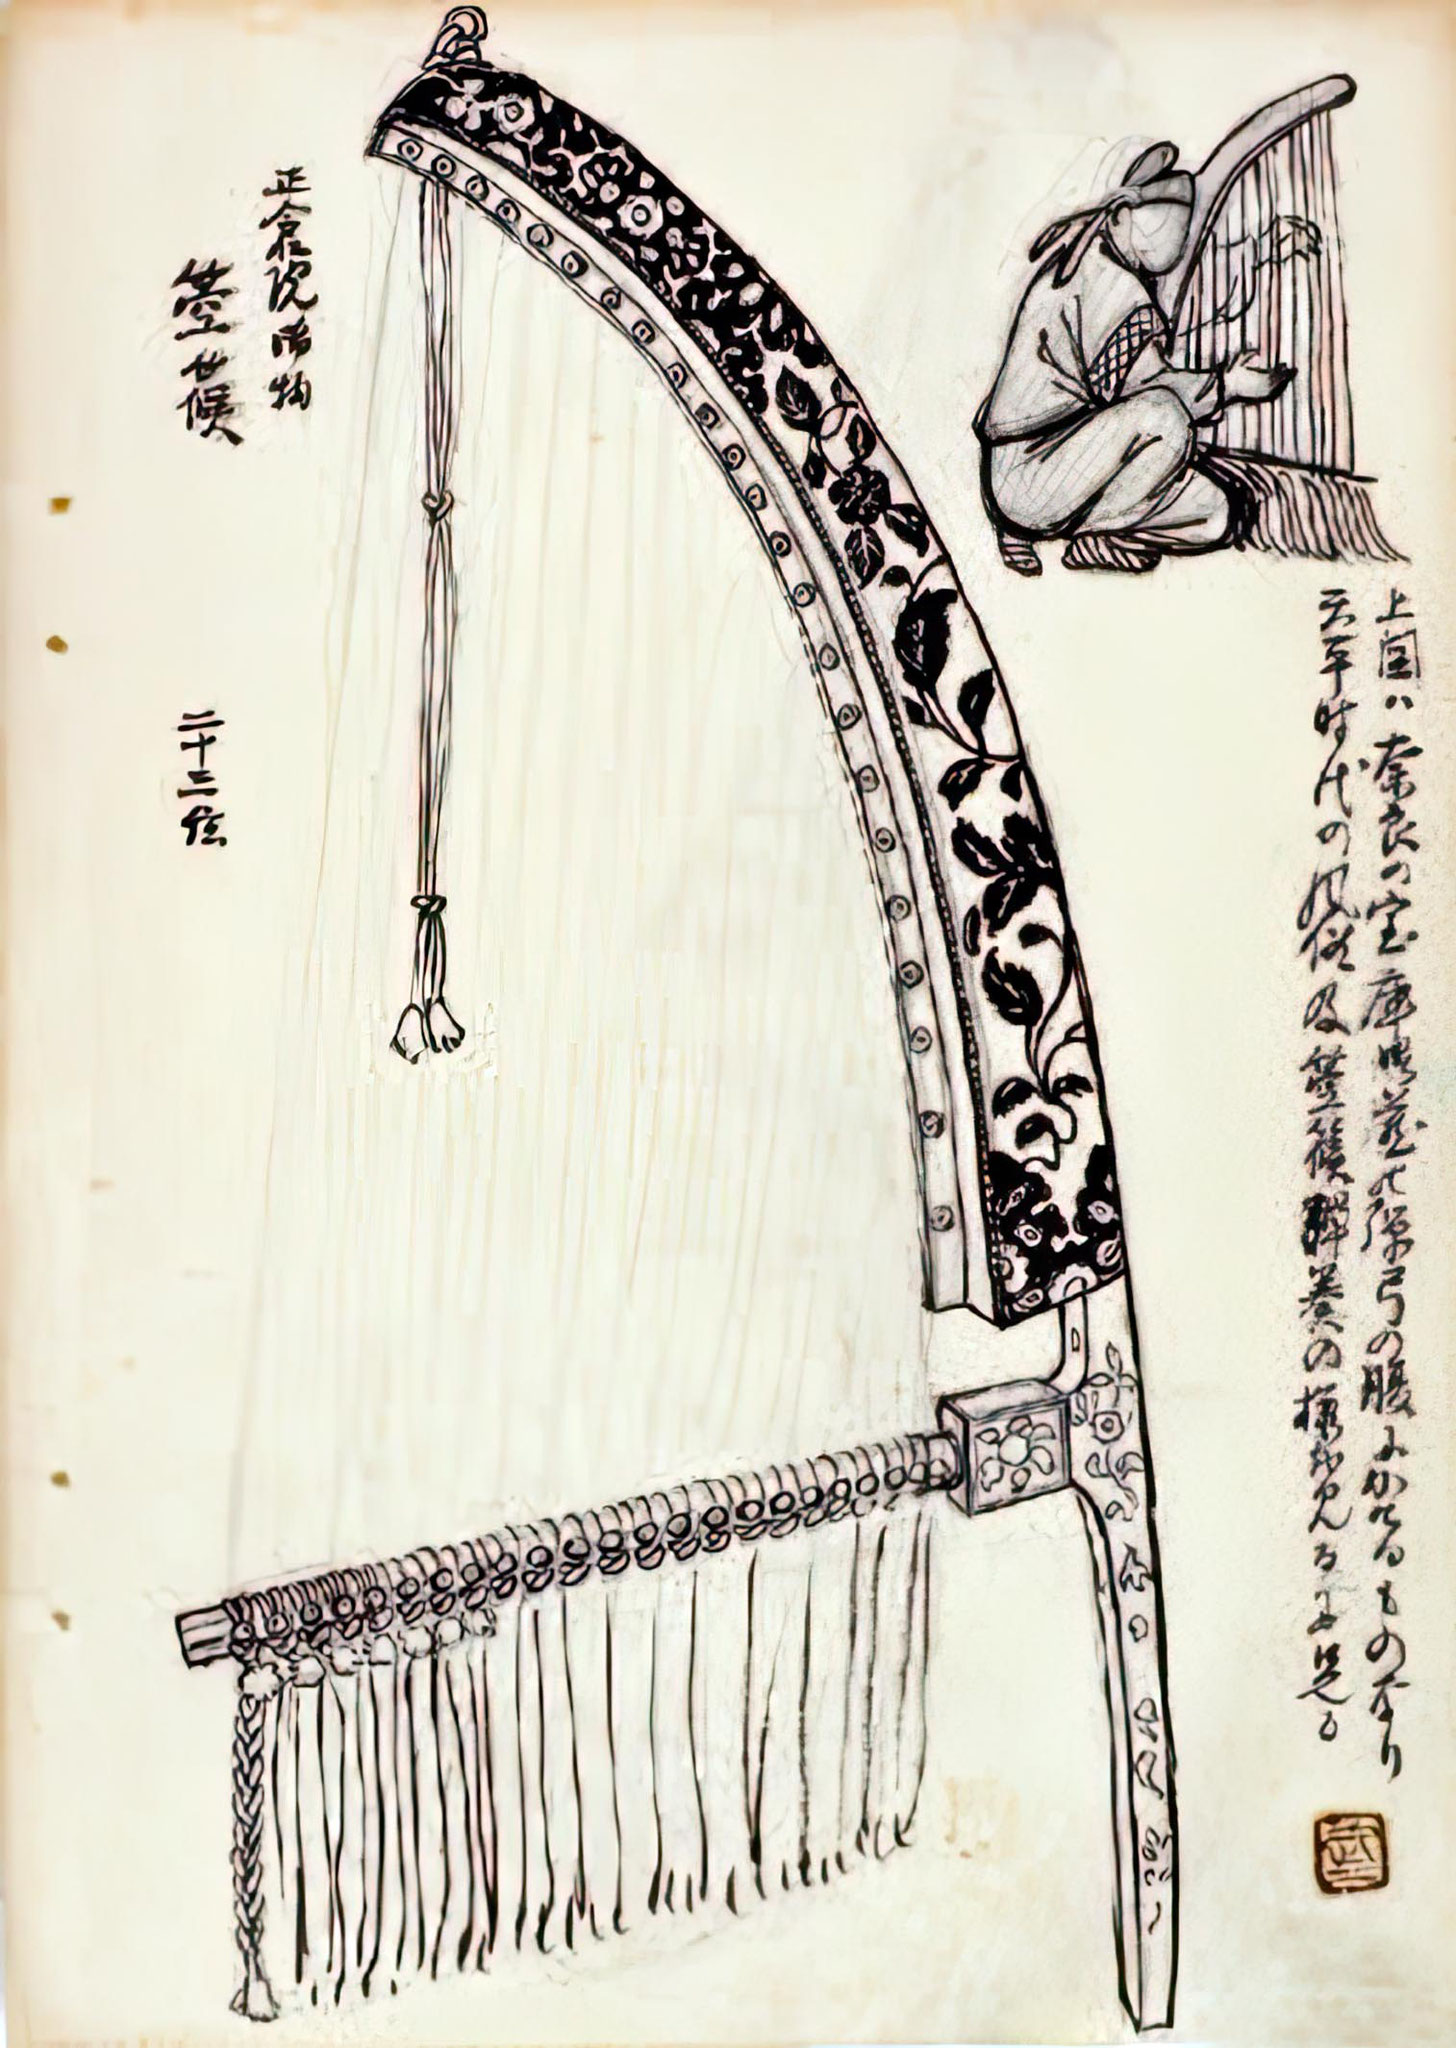 上図ハ奈良の宝庫 蔵の弾弓の腹にかけるものなり
天平時代の風俗及箜篌弾奏の様を見るに足る
正倉院御物
箜篌
二十三絃